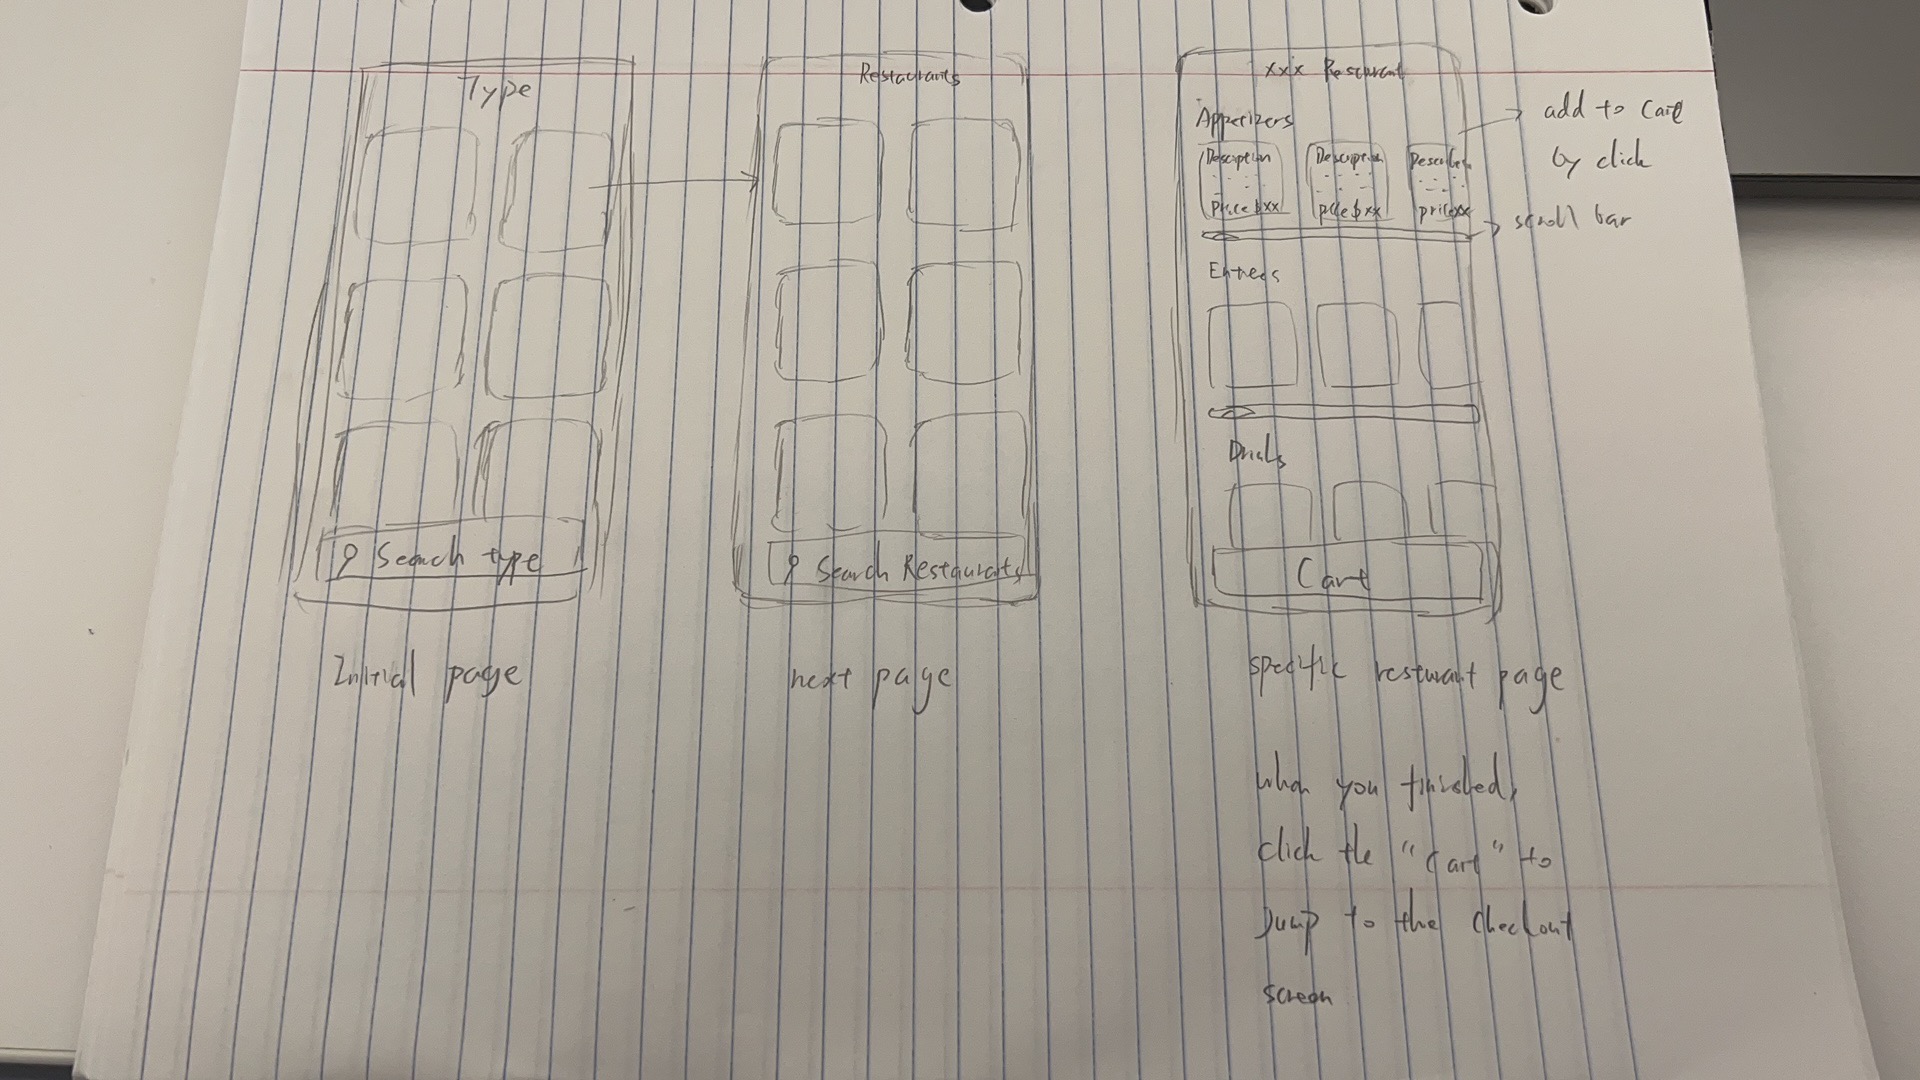 Type
Search type
Initial page
Restaurants
Search Restaurants
next page
xxx Resturant
Appetizers
Description
Price $xx
Description
price $xx
price xx
Entrees
Drinks
Cart
add to cart
by click
scroll bar
specific resturant page
when you finished,
click the "Cart" to
Jump to the checkout
screen